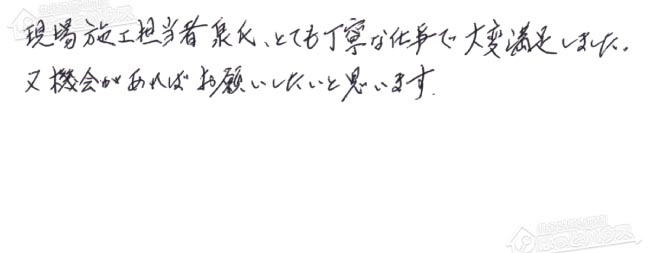 現場施工担当者泉氏、とても丁寧な仕事で大変満足しました。
又機会があればお願いしたいと思います。